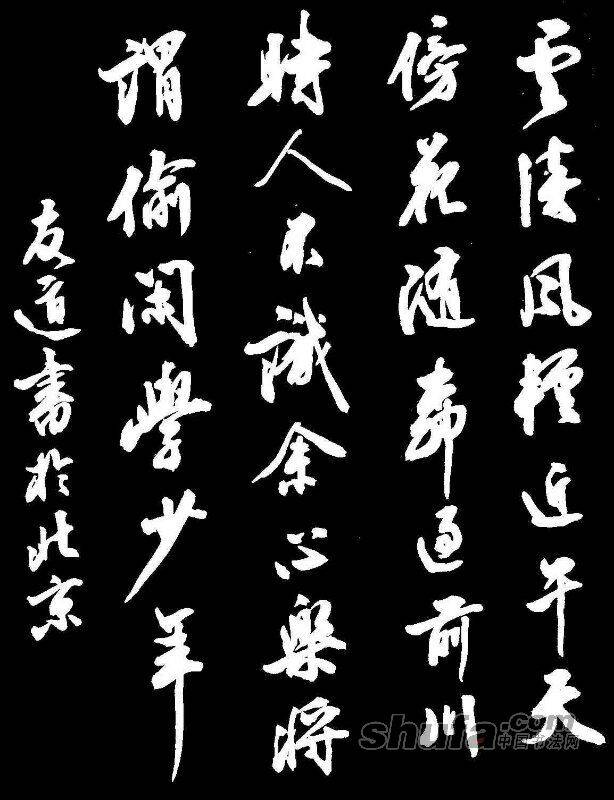 雲淡風輕近午天
傍花随柳過前川
時人不識余心樂將
謂偷閑學少年
友道書於北京
shufa.com
中国书法网